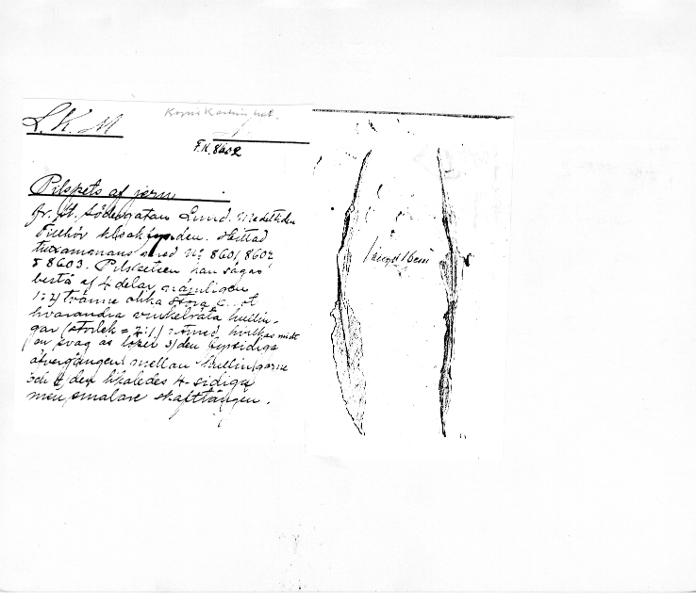 L.K.M
F.N. 8602
Pilspets af jern
fr. St. Södergatan Lund. Medeltiden
Tillhör kloakfynden. Hittad
tillsammans med Nr 8601, 8602
& 8603. Pilspetsen kan sägas
bestå af 4 delar nämligen
1:2) tvänne olika stora
hvarandra vinkelräta hullin-
gar (storlek = 2:1) hvilkas midt
en svag ås löper 3) den fyrsidiga
öfvergången mellan hullingarne
och 4) den likaledes 4-sidiga
men smalare skafttången.
längd 16 cm